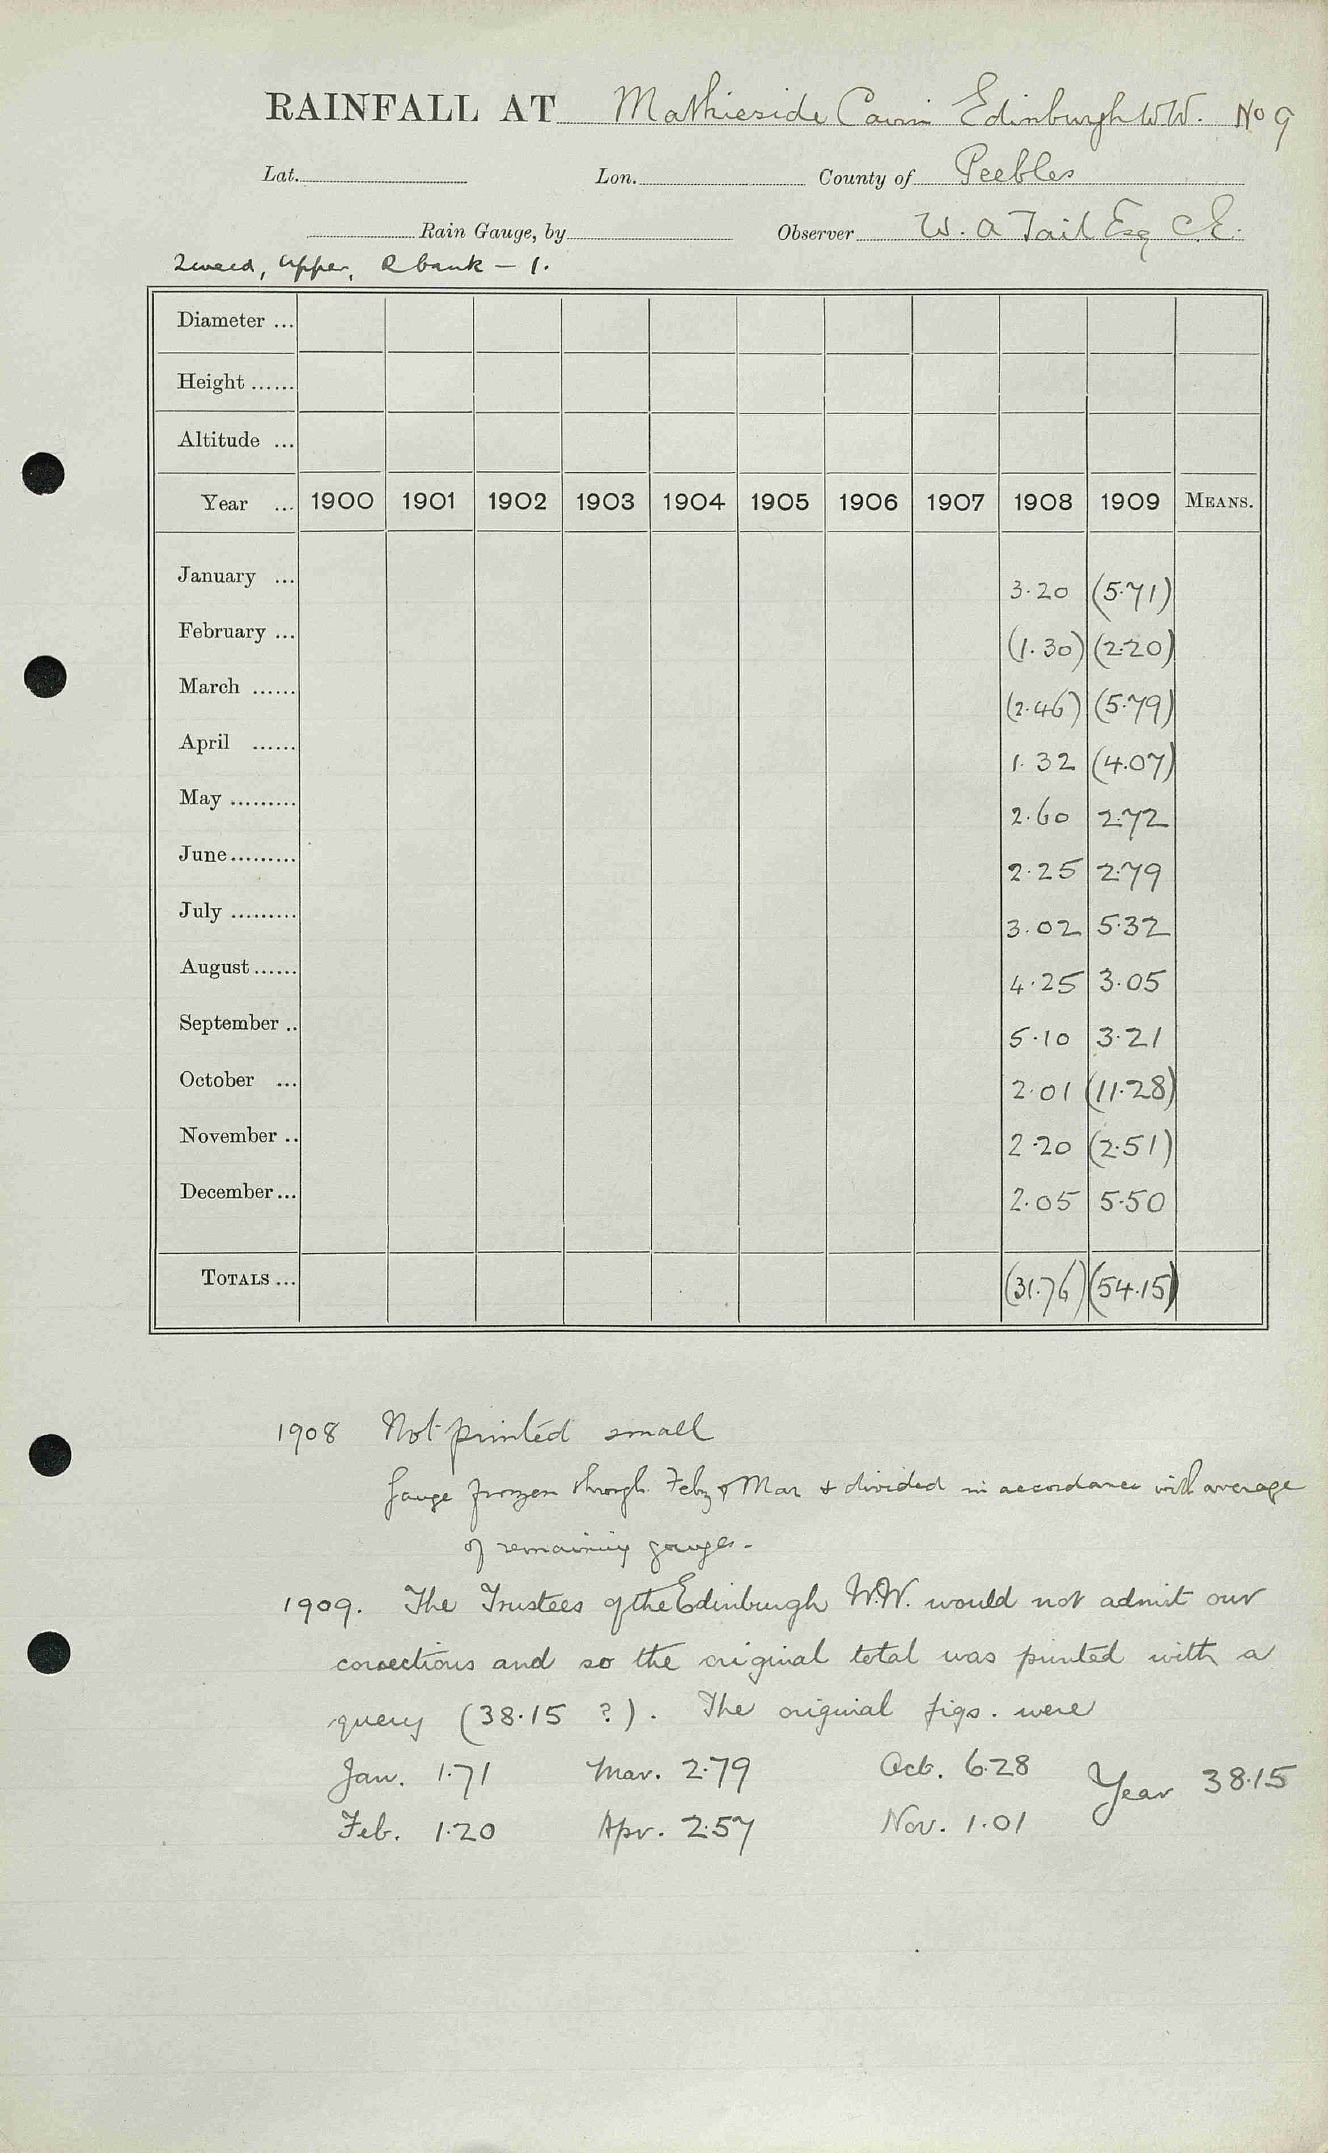 RAINFALL AT Mathieside Cairn Edinburgh W.W. No 9
Lat. Lon. County of Peebles
Rain Gauge, by Observer W. A Tait Esq C.E.
Tweed, Upper, R bank — 1.
Diameter ...
Height ......
Altitude ...
Year ... 1900 1901 1902 1903 1904 1905 1906 1907 1908 1909 MEANS.
January ... 3.20 (5.71)
February ... (1.30) (2.20)
March ...... (2.46) (5.79)
April ...... 1.32 (4.07)
May ......... 2.60 2.72
June ......... 2.25 2.79
July ......... 3.02 5.32
August ...... 4.25 3.05
September .. 5.10 3.21
October ... 2.01 (11.28)
November .. 2.20 (2.51)
December ... 2.05 5.50
TOTALS ... (31.76) (54.15)
1908 Not printed small
Gauge frozen through Feby & Mar & divided in accordance with average
of remaining gauges.
1909. The Trustees of the Edinburgh W.W. would not admit our
corrections and so the original total was printed with a
query (38.15 ?). The original figs. were
Jan. 1.71 Mar. 2.79 Oct. 6.28 Year 38.15
Feb. 1.20 Apr. 2.57 Nov. 1.01